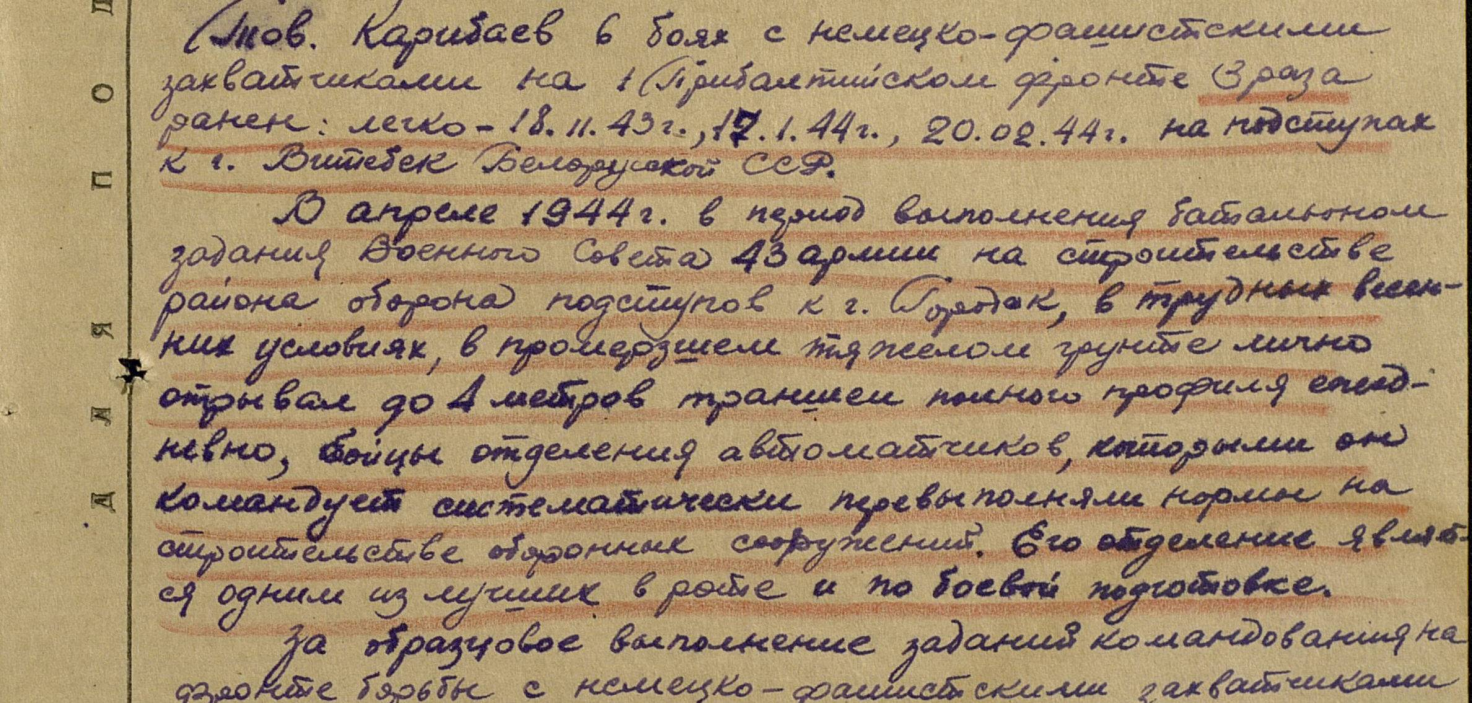 Д
О
П
Я
Л
Д
Тов. Карибаев в боях с немецко-фашистскими
захватчиками на 1 Прибалтийском фронте 3 раза
ранен: легко - 18.11.43г., 17.1.44г., 20.02.44г. на подступах
к г. Витебск Белорусской ССР.
В апреле 1944г. в период выполнения батальоном
задания Военного Совета 43 армии на строительстве
района оборона подступов к г. Городок, в трудных весен-
них условиях, в промерзшем тяжелом грунте лично
отрывал до 4 метров траншеи полного профиля ежед-
невно, бойцы отделения автоматчиков, которыми он
командует систематически перевыполняли нормы на
строительстве оборонных сооружений. Его отделение являет-
ся одним из лучших в роте и по боевой подготовке.
За образцовое выполнение заданий командования на
фронте борьбы с немецко-фашистскими захватчиками